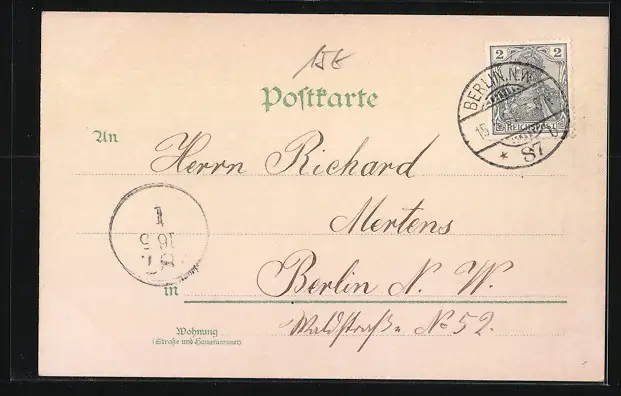 2 2
BERLIN, N.W.
15
REICHSPOST
* 87
Postkarte
An
Herrn Richard
Mertens
1
16 5
87.
in Berlin N. W.
Wohnung
(Straße und Hausnummer)
Waldstraße No 52.